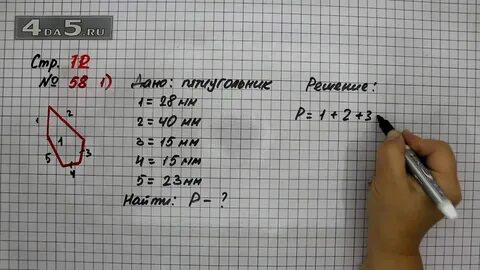 4DA5.RU
Стр. 72
№ 58 1)
Дано: пятиугольник
1 = 28 мм
2 = 40 мм
3 = 15 мм
4 = 15 мм
5 = 23 мм
Найти: P – ?
Решение:
P = 1 + 2 + 3
1
2
3
4
5
1